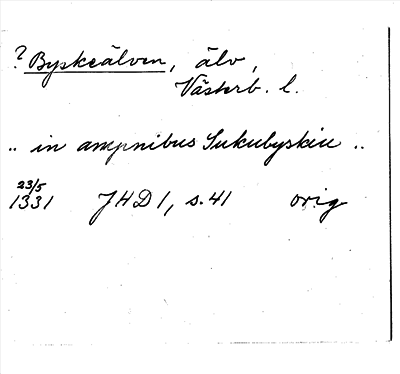 ? Byskeälven, älv,
Västerb. l.
.. in ampnibus Sukubyskiu ..
23/5
1331 JHD 1, s. 41 orig